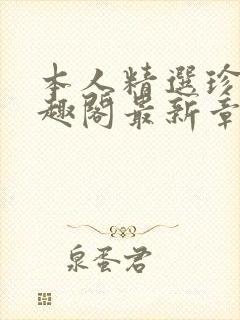 本人精選珍
趣閣最新章
泉蛋君